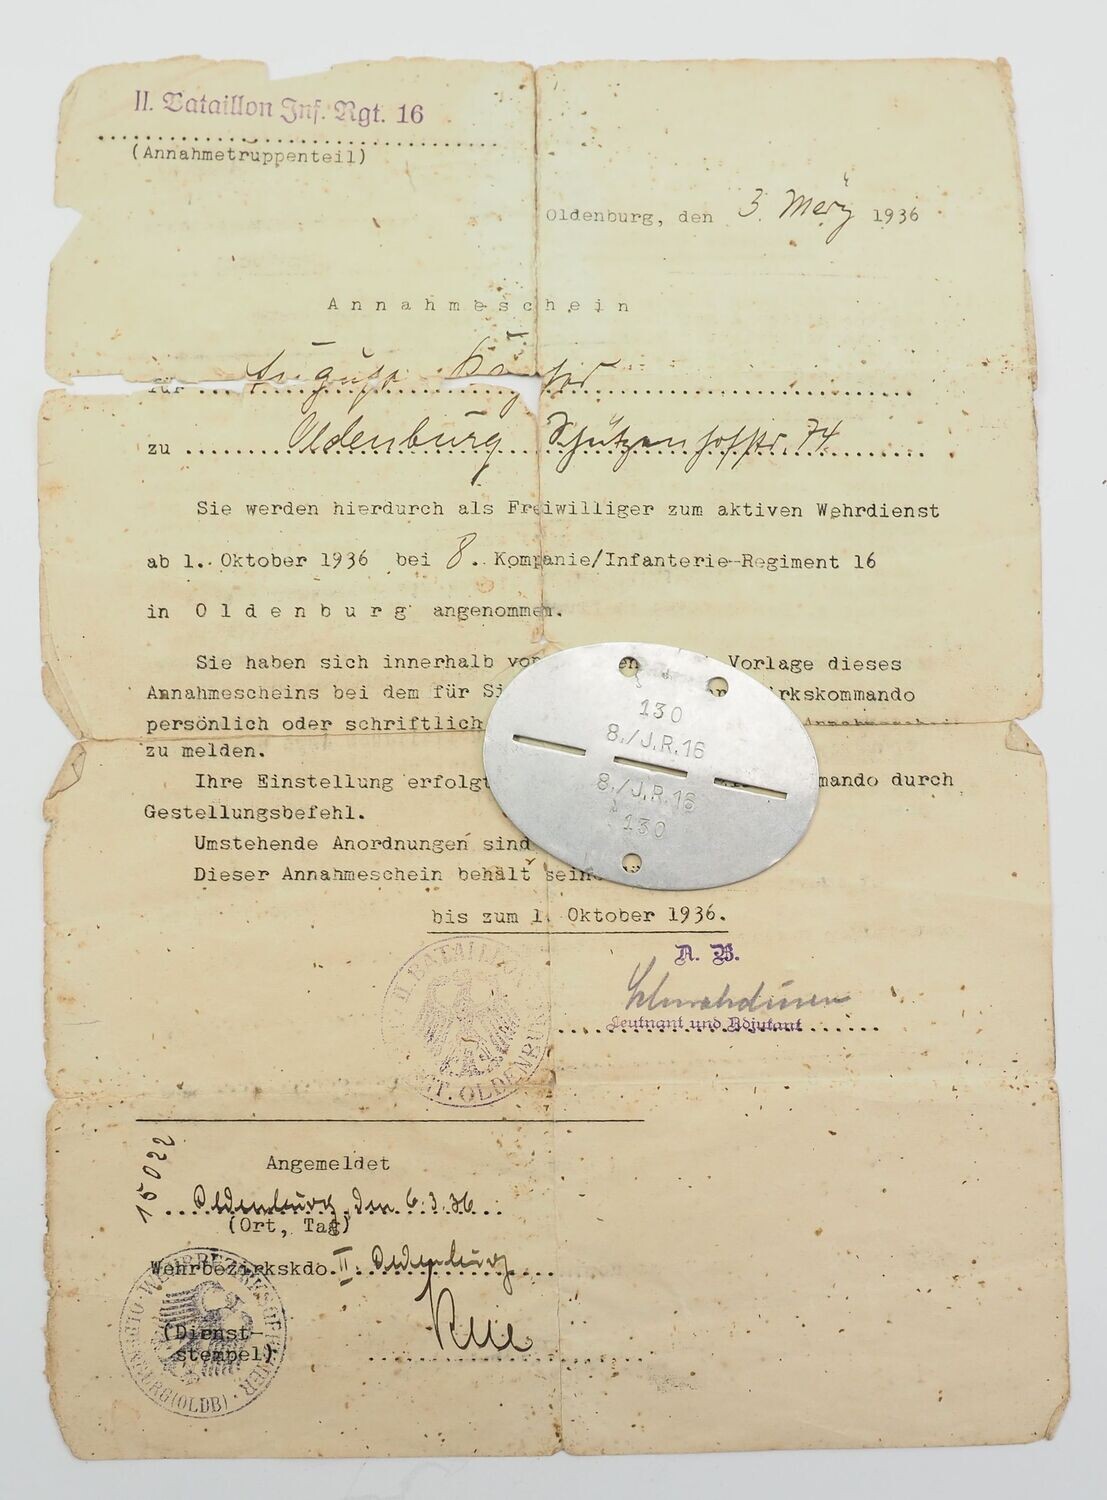 II. Bataillon Inf. Rgt. 16
(Annahmetruppenteil)
Oldenburg, den 3. März 1936
Annahmeschein
für August
zu Oldenburg Schützenhofstr. 74
Sie werden hierdurch als Freiwilliger zum aktiven Wehrdienst
ab 1. Oktober 1936 bei 8. Kompanie/Infanterie-Regiment 16
in Oldenburg angenommen.
Sie haben sich innerhalb von Vorlage dieses
Annahmescheins bei dem für
persönlich oder schriftlich
zu melden.
Ihre Einstellung erfolgt durch
Gestellungsbefehl.
Umstehende Anordnungen sind
Dieser Annahmeschein behält
bis zum 1. Oktober 1936.
130
8./J.R.16
8./J.R.16
130
A. B.
Leutnant und Adjutant
II. BATAILLON OLDENBURG
15022
Angemeldet
Oldenburg, den 6.3.36
(Ort, Tag)
Wehrbezirkskdo. II Oldenburg
(Dienst-
stempel)
WEHRBEZIRKSOFFIZIER OLDENBURG (OLDB)